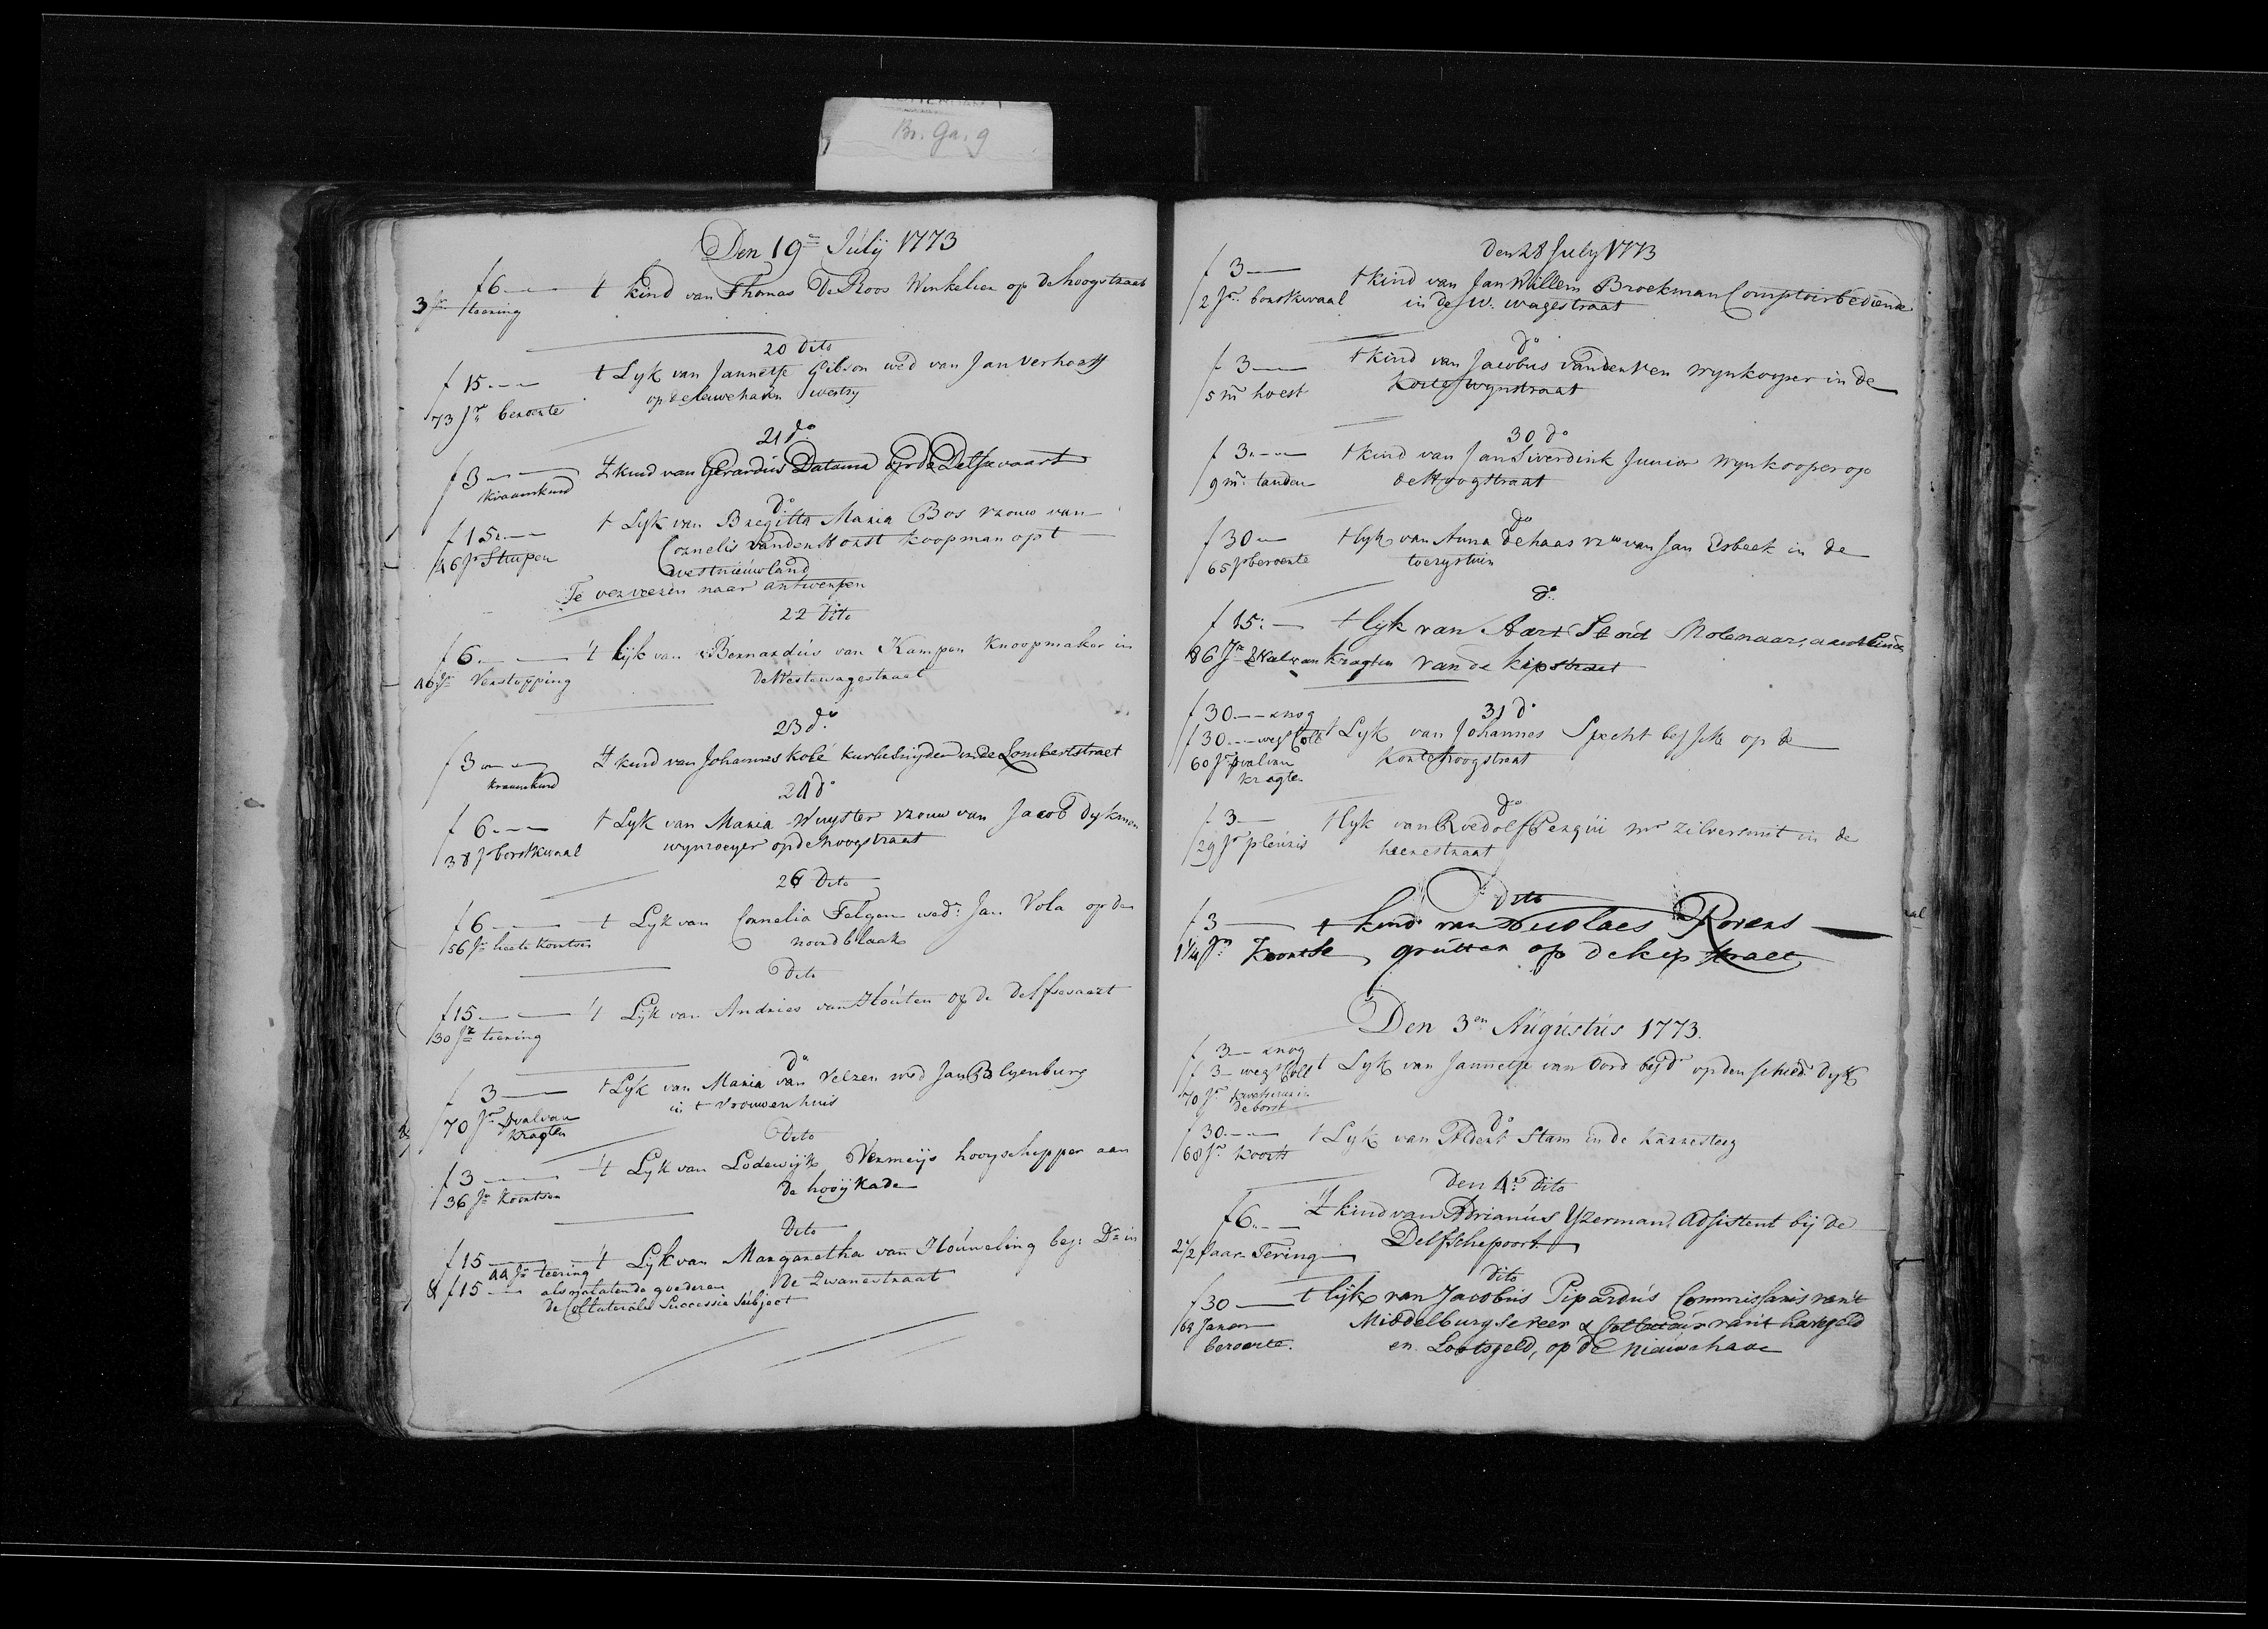 Br. Ga. 9
Den 19en Julij 1773
f 6 — 't kind van Thomas De Roos Winkelier op de hoogstraat
3 Jr teering
20 dito
f 15 — t Lyk van Jannetje Gibson wed van Jan Verhoaff
73 Jr beroerte op de leuwehaven westzy
21 do
f 3 — 't kind van Gerardus Datama op de Delfsevaart
kraamkind
do
f 15 — t Lyk van Bregitta Maria Bos vrouw van
46 Jr Stuipen Cornelis vanden Horst koopman op t
westnieuwland
Te vervoeren naar antwerpen
22 dito
f 6 — 't lijk van Bernardus van Kampen Knoopmaker in
46 Jr Verstopping de Westewagestraat
23 do
f 3 — 't kind van Johannes Kolé kurkesnijder inde Lombertstraet
kraamkind
24 do
f 6 — t Lyk van Maria Wuyster vrouw van Jacob dykman
38 Jr borstkwaal wynroeyer op de hoogstraat
26 Dito
f 6 — t Lyk van Cornelia Felgen wed: Jan Vola op den
56 Jr heete koortsen noordblaak
Dito
f 15 — 't Lyk van Andries van Houten op de delfsevaart
30 Jr teering
do
f 3 — t Lyk van Maria van Velzen wed Jan Blyenburg
70 Jr Verval van in t vrouwenhuis
kragten
Dito
f 3 — 't Lyk van Lodewijk Vermeijs hooyschipper aan
36 Jr koortsen de hooijkade
Dito
f 15 — 't Lyk van Margaretha van Houweling bej: Dr in
44 Jr teering de Zwanestraat
& f 15 — als nalatende goederen
de Collaterale Successie Subject
den 28 July 1773
f 3 — t kind van Jan Willem Broekman Comptoirbediende
2 Jr borstkwaal in de w. wagestraat
do
f 3 — t kind van Jacobus vanden Ven wynkooper in de
5 m hoest korte wynstraat
30 do
f 3 — t kind van Jan Siverdink Junior wynkooper op
9 m tanden de Hoogstraat
do
f 30 — t lyk van Anna de haas vrw van Jan Esbeek in de
65 Jr beroerte toerystuin
do
f 15 — t lyk van Aart Stoid Molenaar, aan 't einde
86 Jr Verval van kragten van de kipstraat
31 do
f 30 — & nog
f 30 — wegs Coll t Lyk van Johannes Specht bej Jr op de
60 Jr Verval van korte hoogstraat
kragten
do
f 3 — t lyk van Roedolf Perquii mr zilversmit in de
29 Jr pleuris heerestraat
Dito
f 3 — t kind van Nicolaes Rovers
1 1/4 Jr koortse grutter op de kipstraet
Den 3en Augustus 1773.
f 3 — & nog
f 3 — wegs Coll t Lyk van Jannetje van Oord bejdr op den schied dyk
70 Jr
de borst
do
f 30 — t Lyk van Aldert Stam in de karresteeg
68 Jr koorts
den 4e dito
f 6 — 't kind van Adrianus Yzerman, Adsistent bij de
2 1/2 Jaar Tering Delfschepoort.
dito
f 30 — t lijk van Jacobus Pipardus Commissaris van 't
64 Jaaren Middelburgse veer & Collecteur van 't havegeld
beroerte. en Lootsgeld, op de Nieuwehave